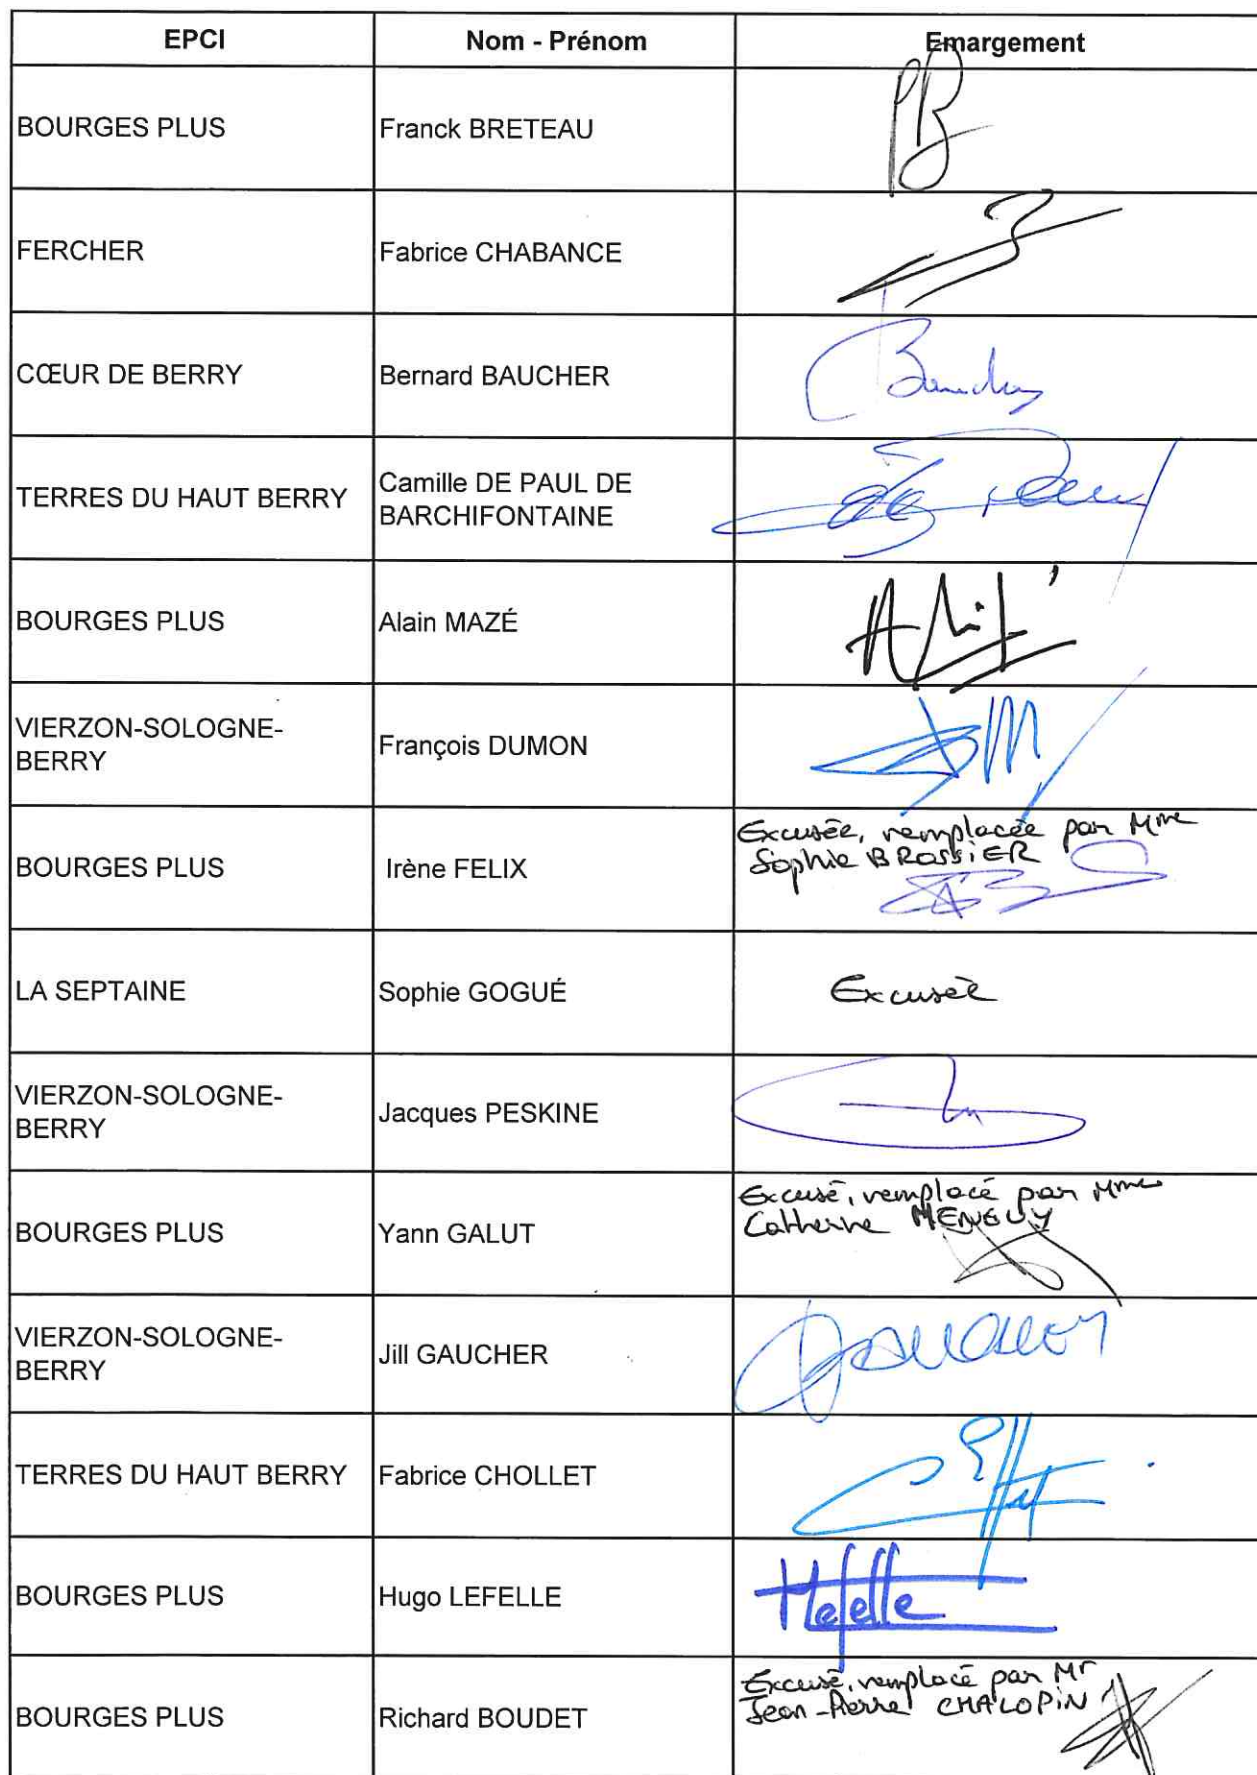 EPCI Nom - Prénom Emargement
BOURGES PLUS Franck BRETEAU
FERCHER Fabrice CHABANCE
CŒUR DE BERRY Bernard BAUCHER
TERRES DU HAUT BERRY Camille DE PAUL DE
BARCHIFONTAINE
BOURGES PLUS Alain MAZÉ
VIERZON-SOLOGNE-
BERRY
François DUMON
BOURGES PLUS Irène FELIX
Excusée, remplacée par Mme
Sophie BROSSIER
LA SEPTAINE Sophie GOGUÉ Excusée
VIERZON-SOLOGNE-
BERRY
Jacques PESKINE
BOURGES PLUS Yann GALUT
Excusé, remplacé par Mme
Catherine MENGUY
VIERZON-SOLOGNE-
BERRY
Jill GAUCHER
TERRES DU HAUT BERRY Fabrice CHOLLET
BOURGES PLUS Hugo LEFELLE Hefelle
BOURGES PLUS Richard BOUDET
Excusé, remplacé par Mr
Jean-Pierre CHALOPIN